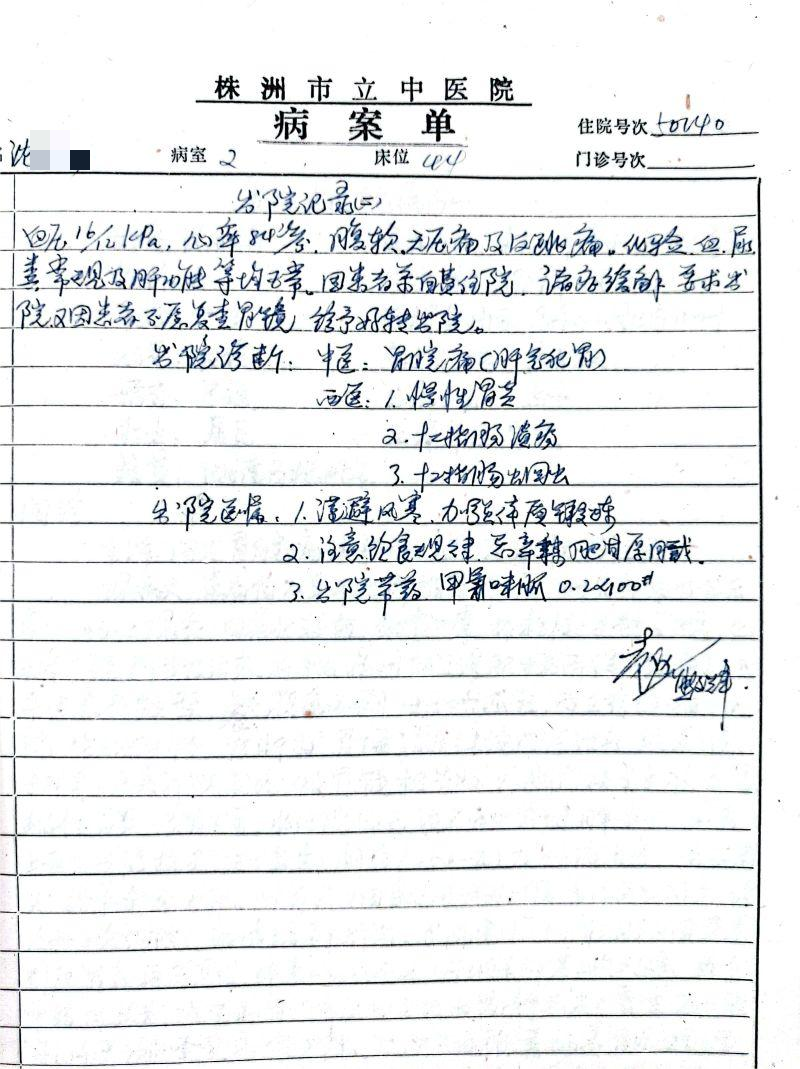 株洲市立中医院
病案单
住院号次 50240
沈
病室 2 床位 44 门诊号次
出院记录(二)
血压16/12KPa,心率84次/分,腹软,无压痛及反跳痛。化验:血、尿
粪常规及肝功能等均正常。因患者系自费住院,诸症缓解,要求出
院,又因患者不愿复查胃镜,给予好转出院。
出院诊断:中医:胃脘痛(肝气犯胃)
西医:1.慢性胃炎
2.十二指肠溃疡
3.十二指肠出血
出院医嘱:1.谨避风寒,加强体质锻炼
2.注意饮食规律,忌辛辣肥甘厚腻。
3.出院带药 甲氰咪胍 0.2×100#